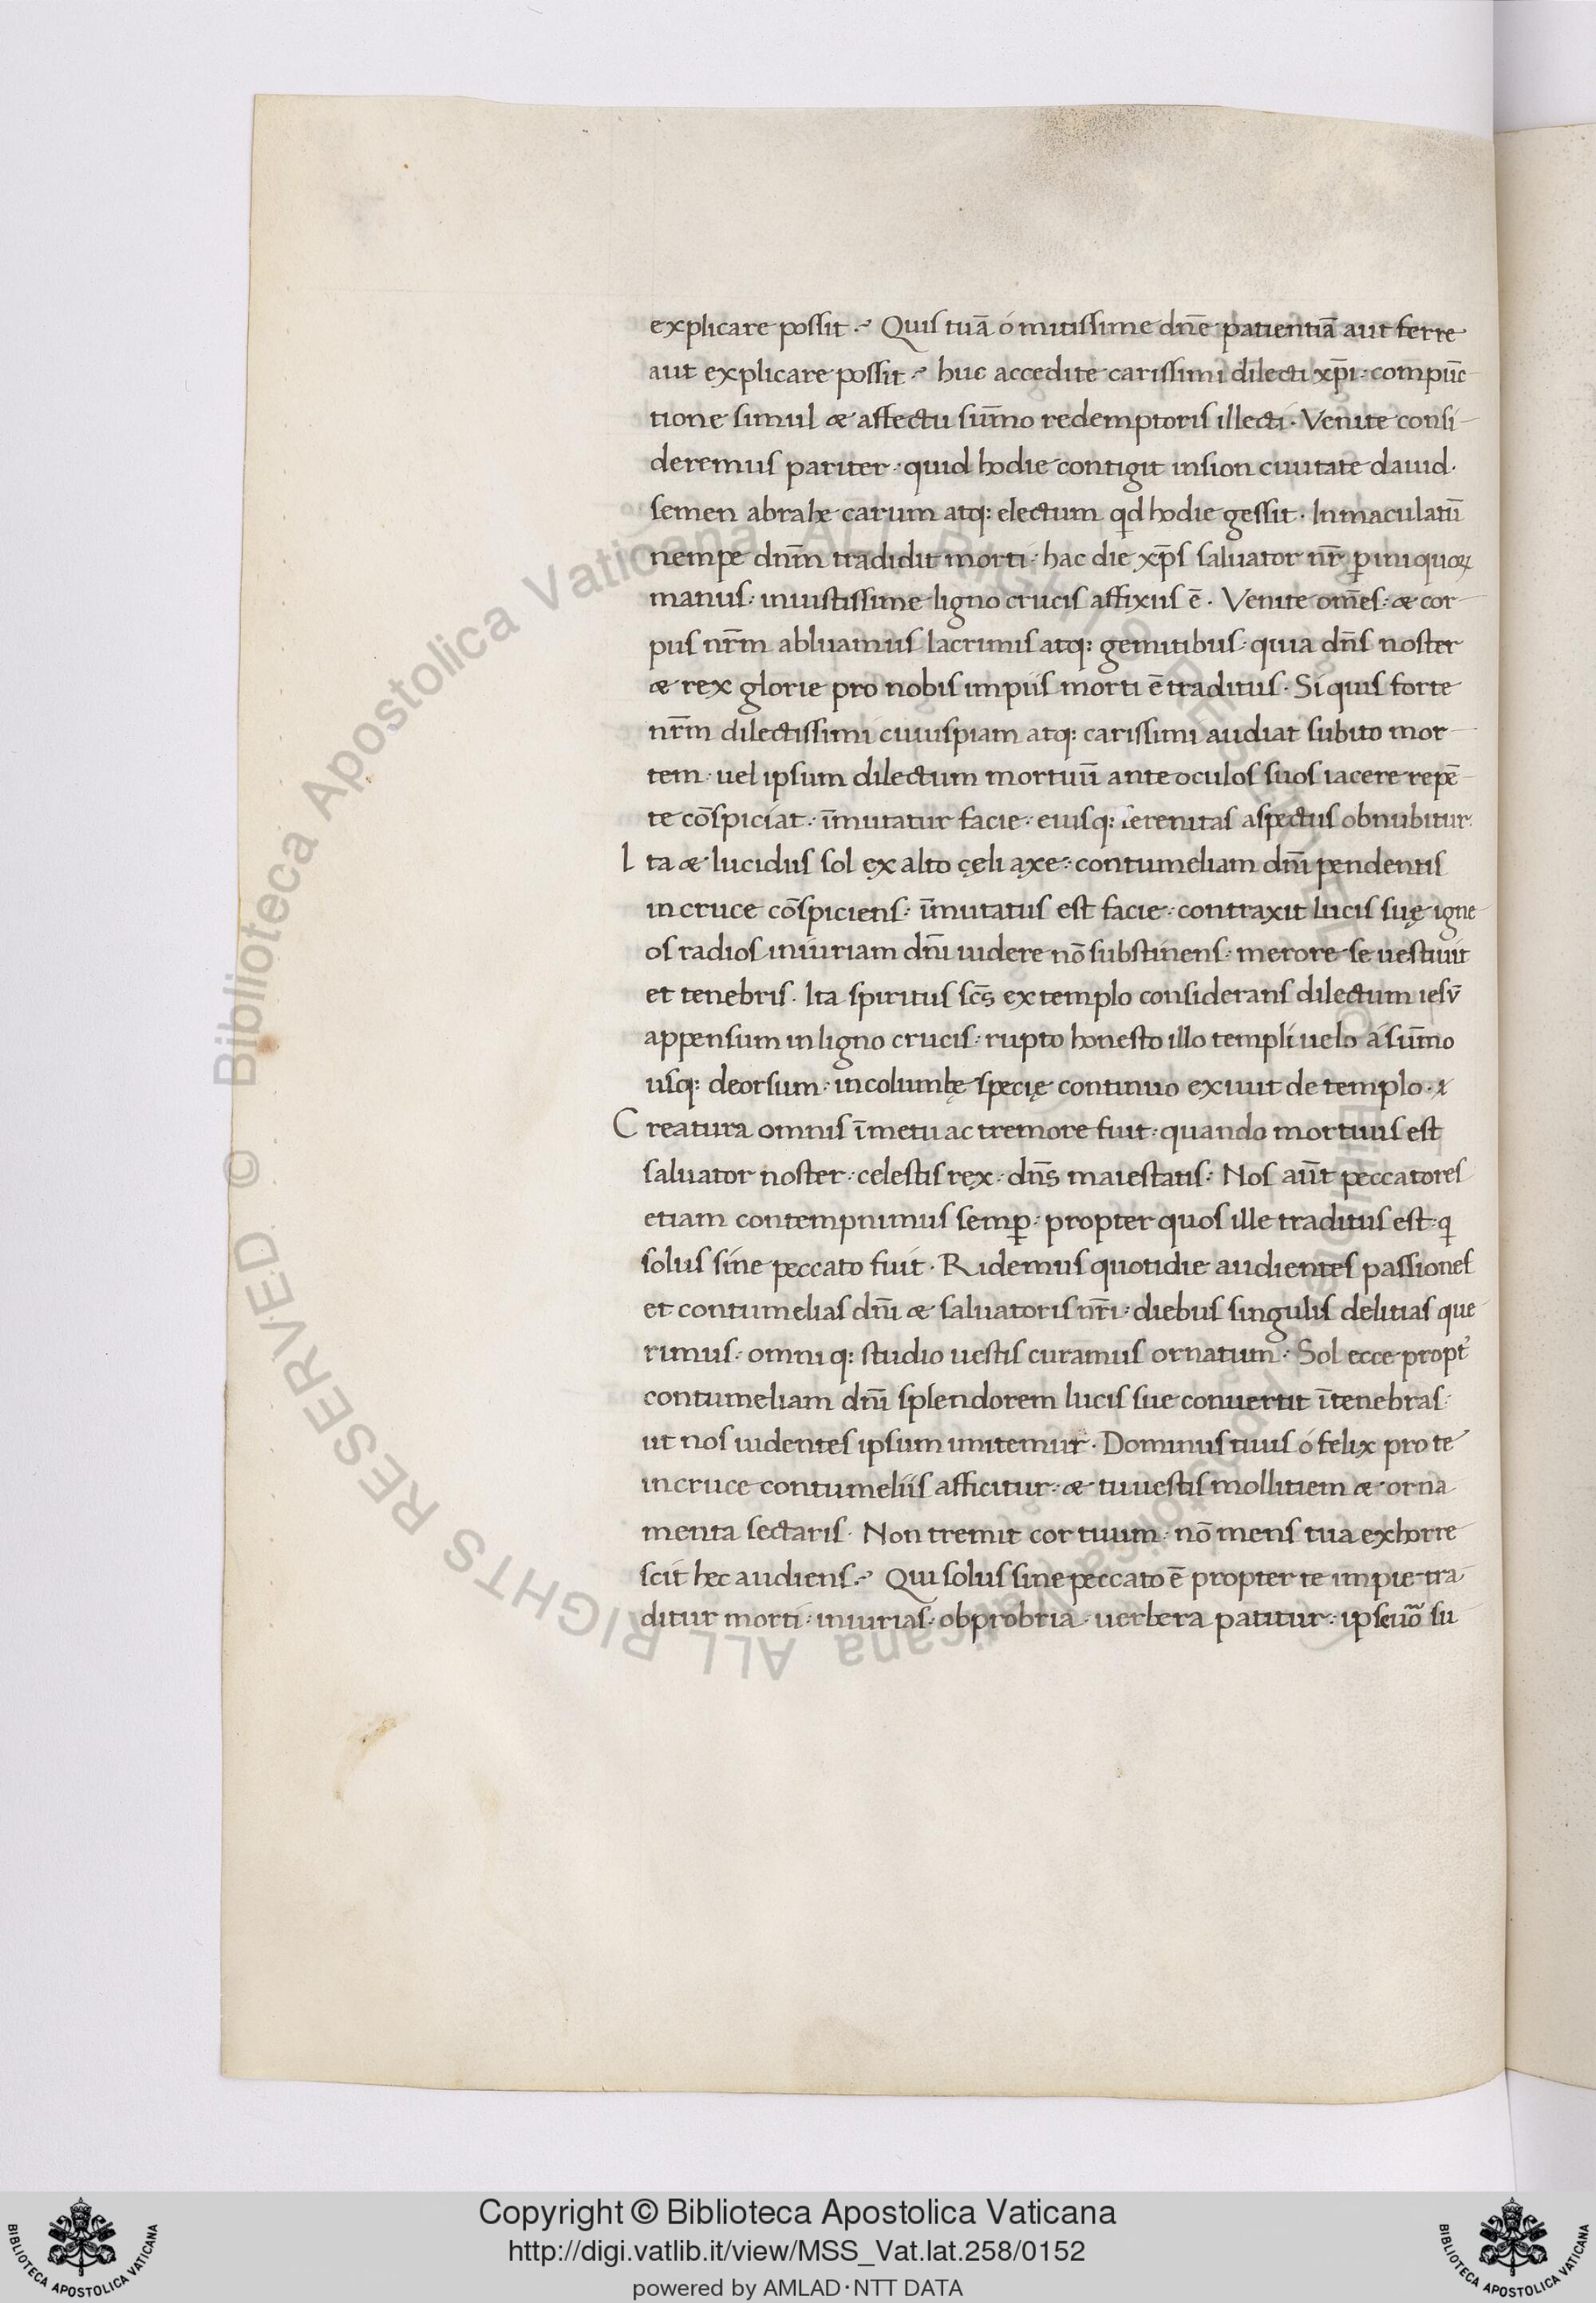 explicare possit. Quis tuā ó mitissime dn̄e patientiā aut ferre
aut explicare possit. huc accedite carissimi dilecti xp̄i: compūc
tione simul & affectu sūmo redemptoris illecti. Venite consi
deremus pariter: quid hodie contigit insion ciuitate dauid.
semen abrahe carum atq: electum qd hodie gessit. Inmaculatū
nempe dn̄m tradidit morti: hac die xp̄s saluator nr̄ p̱ iniquoꝝ
manus: iniustissime ligno crucis affixus ē. Venite om̄es: & cor
pus nr̄m abluamus lacrimis atq: gemitibus: quia dn̄s noster
& rex glorie pro nobis impiis morti ē traditus. Si quis forte
nr̄m dilectissimi cuiuspiam atq: carissimi audiat subito mor
tem: uel ipsum dilectum mortuū ante oculos suos iacere repē
te cōspiciat: īmutatur facie: eiusq: serenitas aspectus obnubitur.
Ita & lucidus sol ex alto cęli axe: contumeliam dn̄i pendentis
in cruce cōspiciens: īmutatus est facie: contraxit lucis suę igne
os radios iniuriam dn̄i uidere nō substinens: merore se uestiuit
et tenebris. Ita spiritus sc̄s ex templo considerans dilectum iesv̄
appensum in ligno crucis: rupto honesto illo templi uelo á sūmo
usq: deorsum: in columbę specię continuo exiuit de templo.
Creatura omnis ī metu ac tremore fuit: quando mortuus est
saluator noster: celestis rex: dn̄s maiestatis: Nos aūt peccatores
etiam contempnimus semꝑ: propter quos ille traditus est: q
solus sine peccato fuit. Ridemus quotidie audientes passiones
et contumelias dn̄i & saluatoris nr̄i: diebus singulis delitias que
rimus: omniq: studio uestis curamus ornatum: Sol ecce propt̉
contumeliam dn̄i splendorem lucis sue conuertit ī tenebras:
ut nos uidentes ipsum imitemur. Dominus tuus ó felix pro te
in cruce contumeliis afficitur: & tu uestis mollitiem & orna
menta sectaris. Non tremit cor tuum: nō mens tua exhorre
scit hec audiens. Qui solus sine peccato ē propter te impie tra
ditur morti: iniurias: obprobria: uerbera patitur: ipse uō su
Copyright © Biblioteca Apostolica Vaticana
http://digi.vatlib.it/view/MSS_Vat.lat.258/0152
powered by AMLAD·NTT DATA
BIBLIOTECA APOSTOLICA VATICANA
BIBLIOTECA APOSTOLICA VATICANA
© Biblioteca Apostolica Vaticana ALL RIGHTS RESERVED